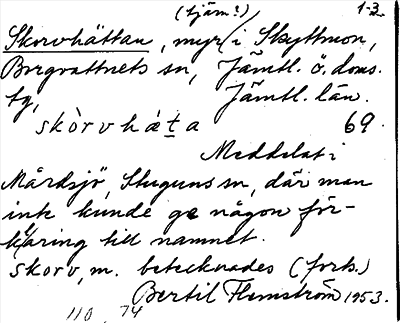 (tjärn?) 1-3.
Skorvhättan, myr i Skyttmon,
Borgvattnets sn, Jämtl. ö. doms.
tg, Jämtl. län.
skòrvhat̠a 69.
Meddelat i
Mårdsjö, Stuguns sn, där man
inte kunde ge någon för-
klaring till namnet.
skorv, m. betecknades (forts.)
Bertil Flemström 1953.
110 74